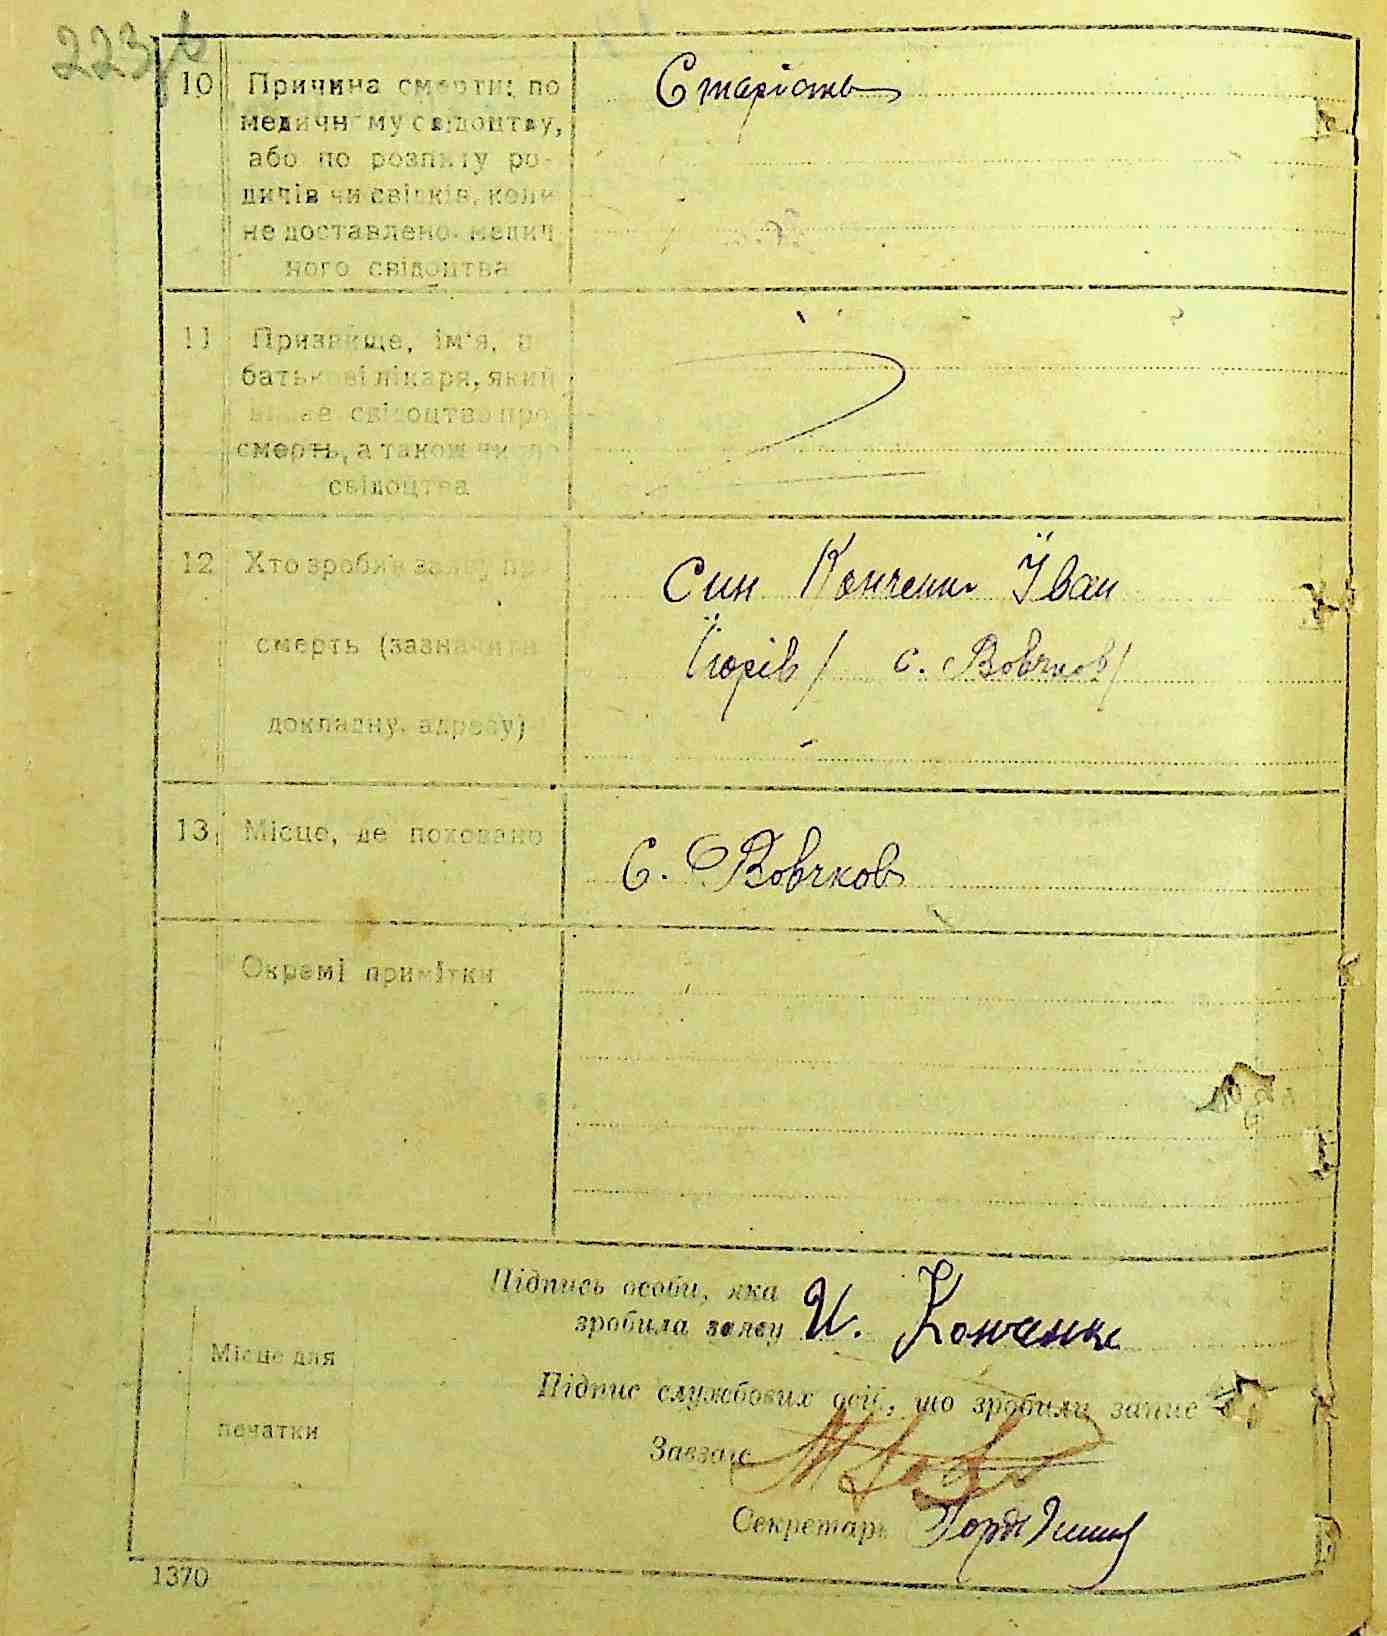 223
10 Причина смерти: по Старість
медичному свідоцтву,
або по розпиту ро-
дичів чи свідків, коли
не доставлено медич
ного свідоцтва
11 Призвище, ім'я, п
батькові лікаря, який
видав свідоцтво про
смерть, а також число
свідоцтва
12 Хто зробив заяву про Син Конченко Їван
смерть (зазначити Їгорів / с. Вовчков/
докладну адресу)
13. Місце, де поховано с. Вовчков
Окремі примітки
Підпись особи, яка
зробила заяву И. Конченко
Місце для
печатки
Підпис службових осіб, що зробили запис
Завзагс
Секретарь
1370